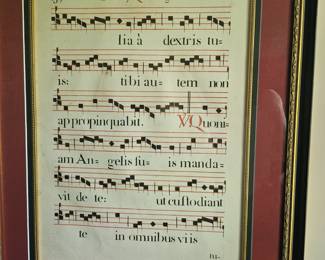 lia à dextris tu-
is: tibi au- tem non
appropinquabit. ℣. Quoni-
am An- gelis su- is manda-
vit de te: ut custodiant
te in omnibus viis
tu-